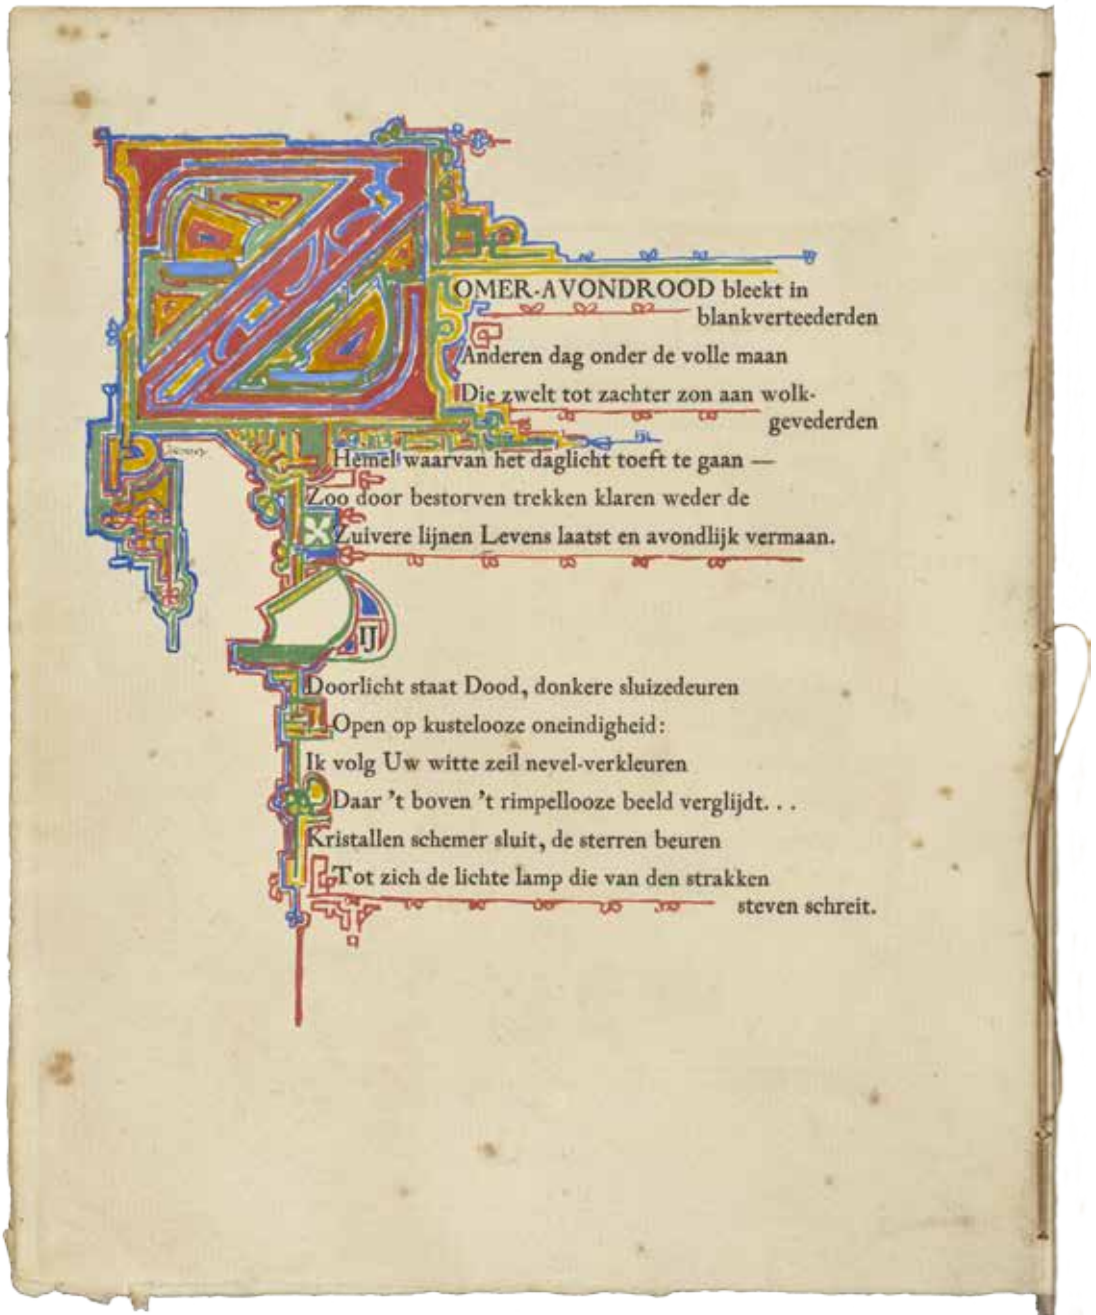 ZOMER-AVONDROOD bleekt in
blankverteederden
Anderen dag onder de volle maan
Die zwelt tot zachter zon aan wolk-
gevederden
Hemel waarvan het daglicht toeft te gaan —
Zoo door bestorven trekken klaren weder de
Zuivere lijnen Levens laatst en avondlijk vermaan.
IJ
Doorlicht staat Dood, donkere sluizedeuren
Open op kustelooze oneindigheid:
Ik volg Uw witte zeil nevel-verkleuren
Daar 't boven 't rimpellooze beeld verglijdt. . .
Kristallen schemer sluit, de sterren beuren
Tot zich de lichte lamp die van den strakken
steven schreit.